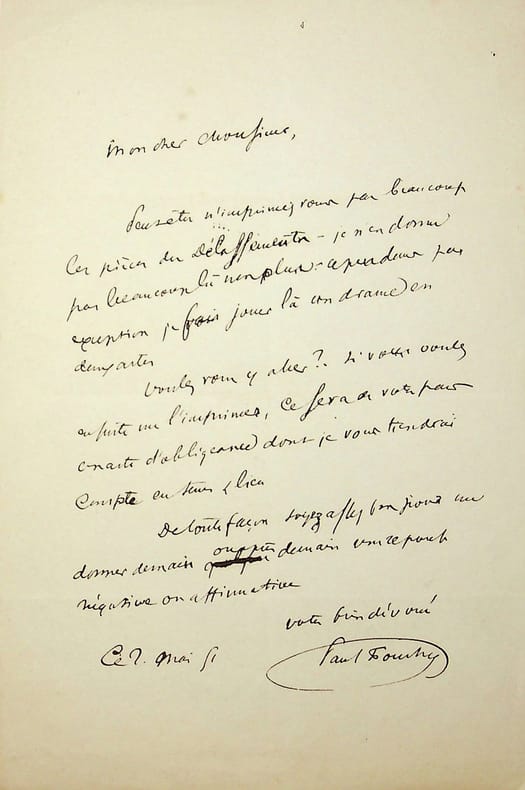 Mon cher Monsieur,
Peut être n'imprimez vous pas beaucoup
les pièces des Délassements - je n'en donne
pas beaucoup là non plus - cependant par
exception je fais jouer là un drame en
deux actes
Voulez vous y aller? Si vous voulez
ensuite me l'imprimer, ce sera de votre part
un acte d'obligeance dont je vous tiendrai
compte en tems & lieu
De toute façon soyez assez bon pour me
donner demain ou après demain une réponse
négative ou affirmative
votre bien dévoué
Ce 2. Mai 51
Paul Foucher